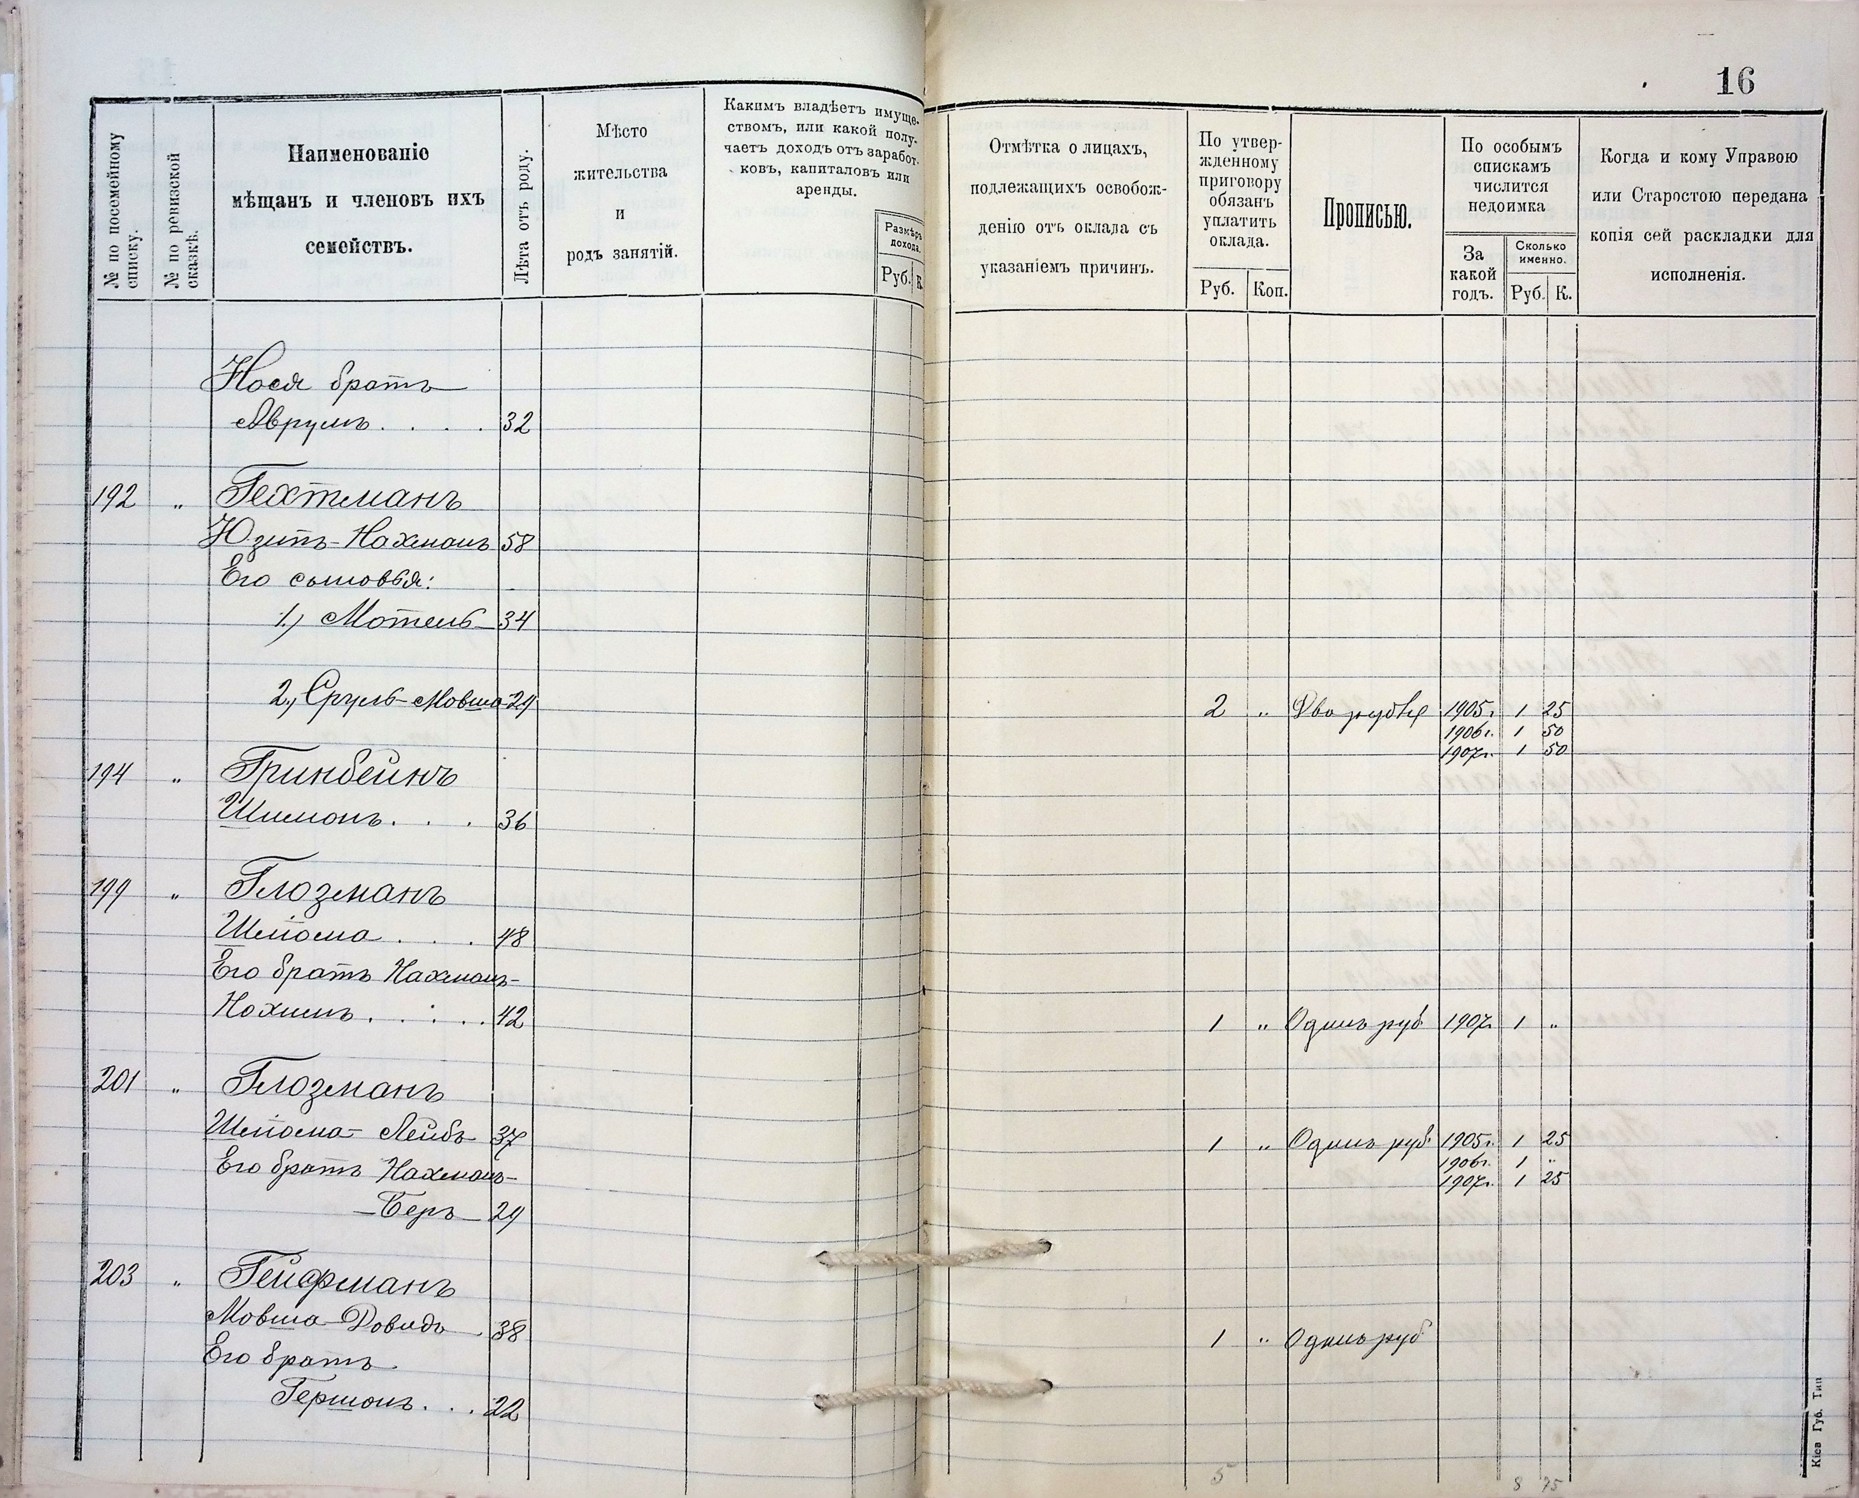 16
№ по посемейному списку.
№ по ревизской сказкѣ.
Наименованіе
мѣщанъ и членовъ ихъ
семействъ.
Лѣта отъ роду.
Мѣсто
жительства
и
родъ занятій.
Какимъ владѣетъ имуще-
ствомъ, или какой полу-
чаетъ доходъ отъ заработ-
ковъ, капиталовъ или
аренды.
Размѣръ
дохода.
Руб. К.
Отмѣтка о лицахъ,
подлежащихъ освобож-
денію отъ оклада съ
указаніемъ причинъ.
По утвер-
жденному
приговору
обязанъ
уплатить
оклада.
Руб. Коп.
Прописью.
По особымъ
спискамъ
числится
недоимка
За
какой
годъ.
Сколько
именно.
Руб. К.
Когда и кому Управою
или Старостою передана
копія сей раскладки для
исполненія.
Нося братъ
Аврумъ . . . . 32
192 " Гехтманъ
Юзипъ-Нахманъ 58
Его сыновья:
1.) Мотель 34
2.) Сруль-Мовша 29 2 " Два рубля 1905г. 1 25
1906г. 1 50
1907г. 1 50
194 " Гринбейнъ
Шимонъ . . . 36
199 " Глозманъ
Шліома . . . 48
Его братъ Нахманъ-
Нохимъ . . . . 42 1 " Одинъ руб 1907г. 1 "
201 " Глозманъ
Шліома-Лейбъ 37 1 " Одинъ руб. 1905г. 1 25
Его братъ Нахманъ- 1906г. 1 "
1907г. 1 25
Беръ 29
203 " Гейфманъ
Мовша-Довидъ 38 1 " Одинъ руб
Его братъ
Гершонъ . . . 22
5 8 75
Кіев Губ. Тип